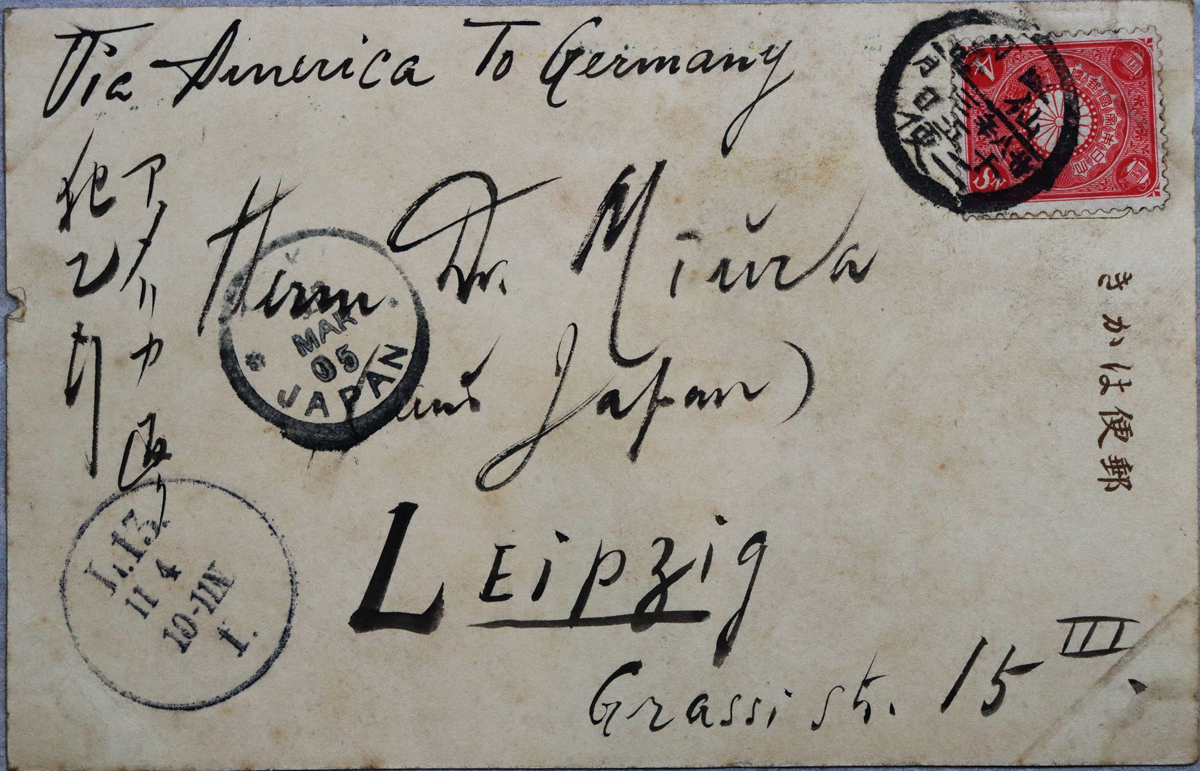 Via America To Germany
アメリカ通り
独乙行
Herrn Dr. Miŭra
(aus Japan)
Leipzig
Grassi str. 15 III.
きかは便郵
MAR
05
JAPAN
L.13.
11 4
10-11N
1.
4 Sn